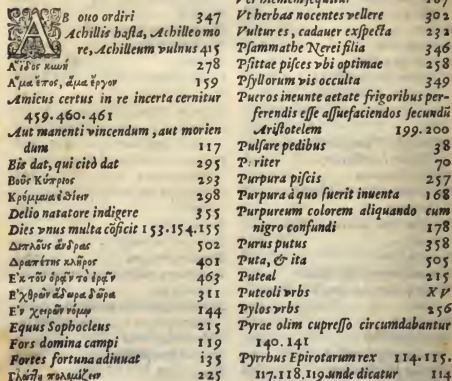 AB ouo ordiri 347
Achillis hasta, Achilleo mo
re, Achilleum vulnus 415
Ἄϊδος κυνῆ 278
Ἅμα ἔπος, ἅμα ἔργον 159
Amicus certus in re incerta cernitur
459.460.461
Aut manenti vincendum, aut morien
dum 117
Bis dat, qui citò dat 295
Βοῦς Κύπριος 293
Κρόμμυα ἐσθίειν 298
Delio natatore indigere 355
Dies vnus multa cōficit 153.154.155
Διπλοῦς ἄνδρας 502
Δραπέτης κλῆρος 401
Ἐκ τοῦ ὁρᾷν τὸ ἐρᾷν 463
Ἐχθρῶν ἄδωρα δῶρα 311
Ἐν χειρῶν νόμῳ 144
Equus Sophocleus 215
Fors domina campi 119
Fortes fortuna adiuuat 135
Γλώττῃ πολεμίζειν 225
sequitur 167
Vt herbas nocentes vellere 302
Vultures, cadauer exspecta 232
Psammathe Nerei filia 346
Psittae pisces vbi optimae 258
Psyllorum vis occulta 349
Pueros ineunte aetate frigoribus per-
ferendis esse assuefaciendos secundū
Aristotelem 199.200
Pulsare pedibus 38
riter 70
Purpura piscis 257
Purpura à quo fuerit inuenta 168
Purpureum colorem aliquando cum
nigro confundi 178
Purus putus 358
Puta, & ita 505
Puteal 215
Puteoli vrbs XV
Pylos vrbs 256
Pyrae olim cupresso circumdabantur
140.141
Pyrrhus Epirotarum rex 114.115.
117.118.119.unde dicatur 114